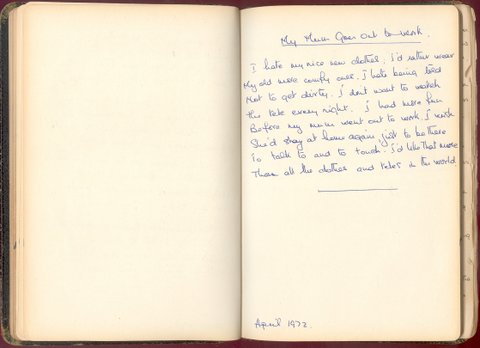 My Mum Goes Out to work.
I hate my nice new clothes. I'd rather wear
My old more comfy ones. I hate being told
Not to get dirty. I don't want to watch
The tele every night. I had more fun
Before my mum went out to work. I wish
She'd stay at home again just to be there
To talk to and to touch. I'd like that more
Than all the clothes and teles in the world
April 1972.